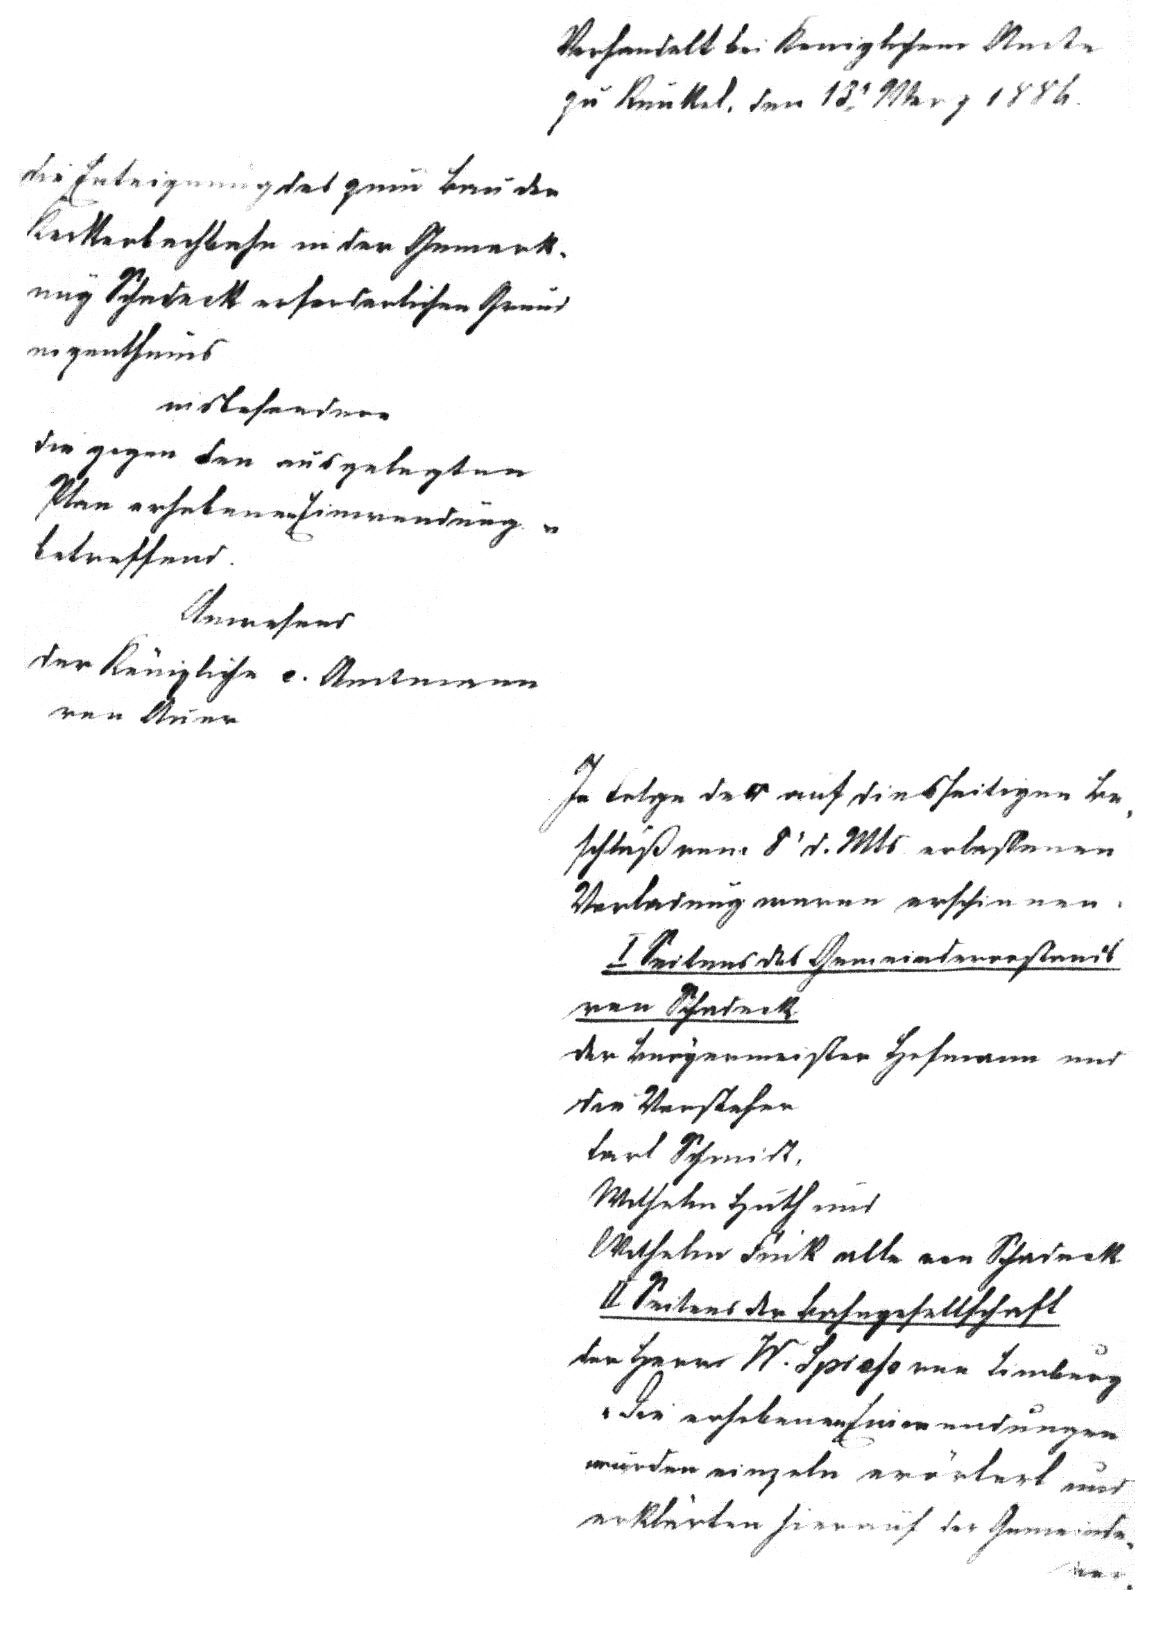 Verhandelt bei Königlichem Amte
zu Runkel, den 13' März 1886.
die Enteignung des zum Bau der
Kerkerbachbahn in der Gemark-
ung Schadeck erforderlichen Grund
eigenthums
insbesondere
die gegen den ausgelegten
Plan erhobenen Einwendungen
betreffend.
Anwesend
der Königliche c. Amtmann
von Auer
In Folge der auf diesseitigen Be-
schluß vom 8' d. Mts erlassenen
Vorladung waren erschienen.
I Seitens des Gemeindevorstands
von Schadeck
der Bürgermeister Hofmann und
die Vorsteher
Carl Schmidt,
Wilhelm Huth und
Wilhelm Fink alle von Schadeck
II Seitens der Bahngesellschaft
der Herr W. Spiess von Limburg
Die erhobenen Einwendungen
wurden einzeln erörtert und
erklärten hierauf der Gemeinde-
vor-